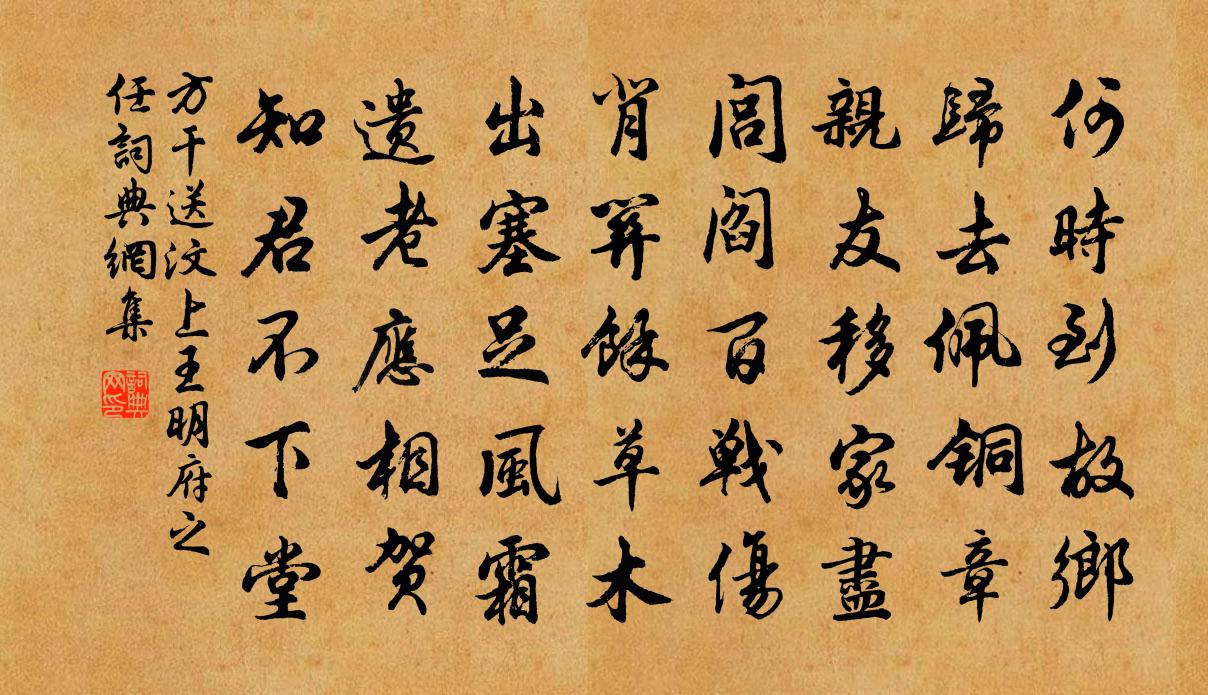 何時到故鄉
歸去佩銅章
親友移家盡
閭閻百戰傷
背關餘草木
出塞足風霜
遺老應相賀
知君不下堂
方干送汶上王明府之
任詞典網集
詞典網印